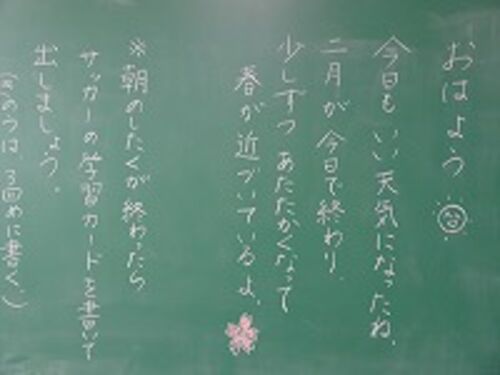 おはよう
今日も いい天気になったね。
二月が 今日で終わり。
少しずつ あたたかくなって
春が 近づいているよ。
※朝のしたくが 終わったら
サッカーの学習カードを書いて
出しましょう。